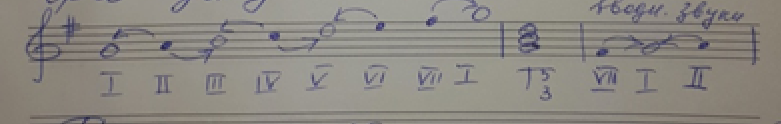 вводн. звуки
I II III IV V VI VII I T5 VII I II
3